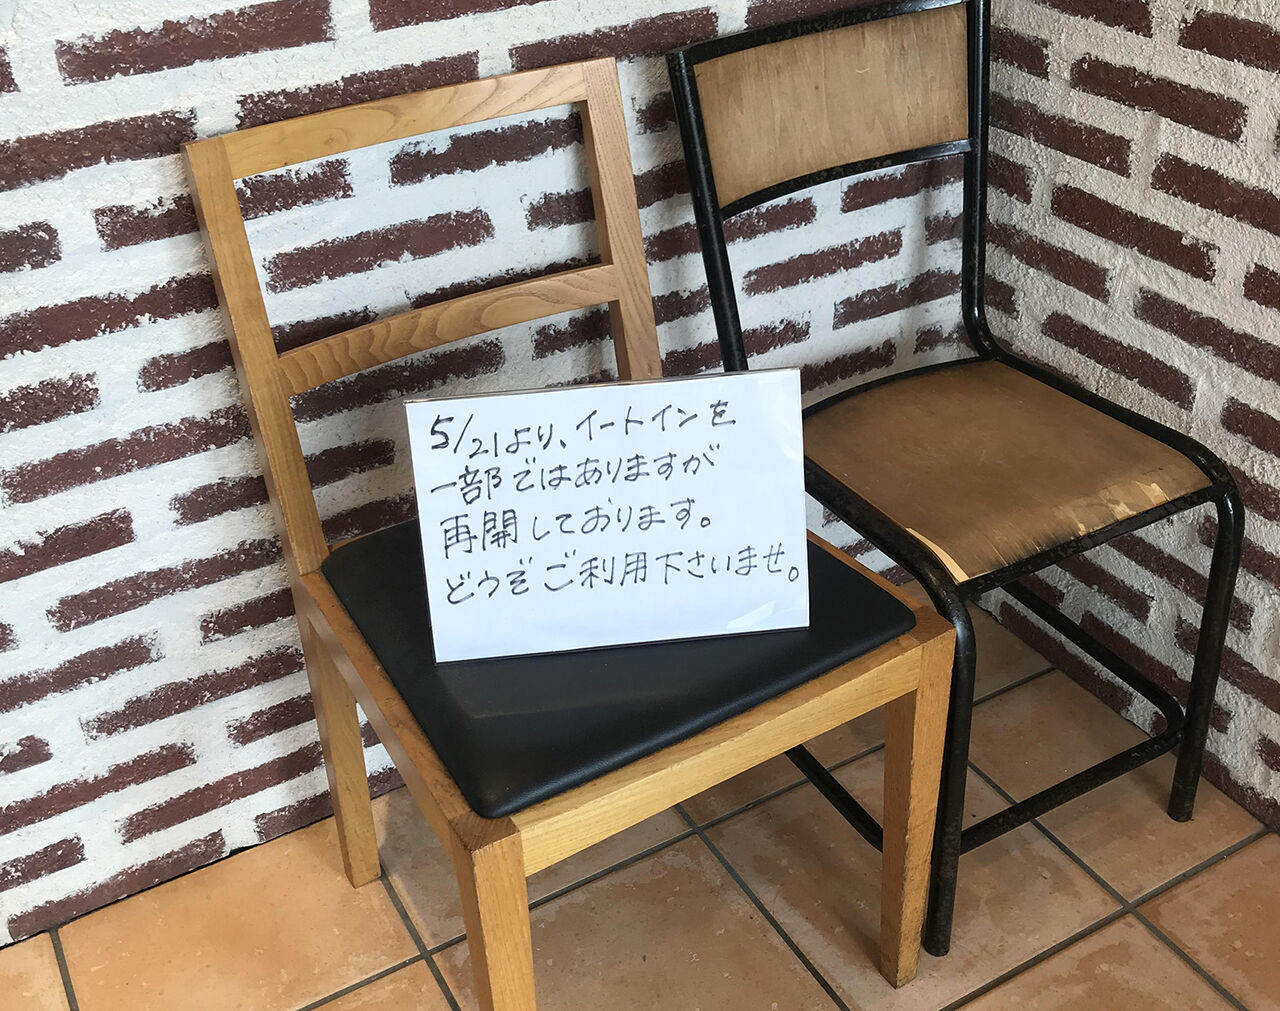 5/21より、イートインを
一部ではありますが
再開しております。
どうぞご利用下さいませ。